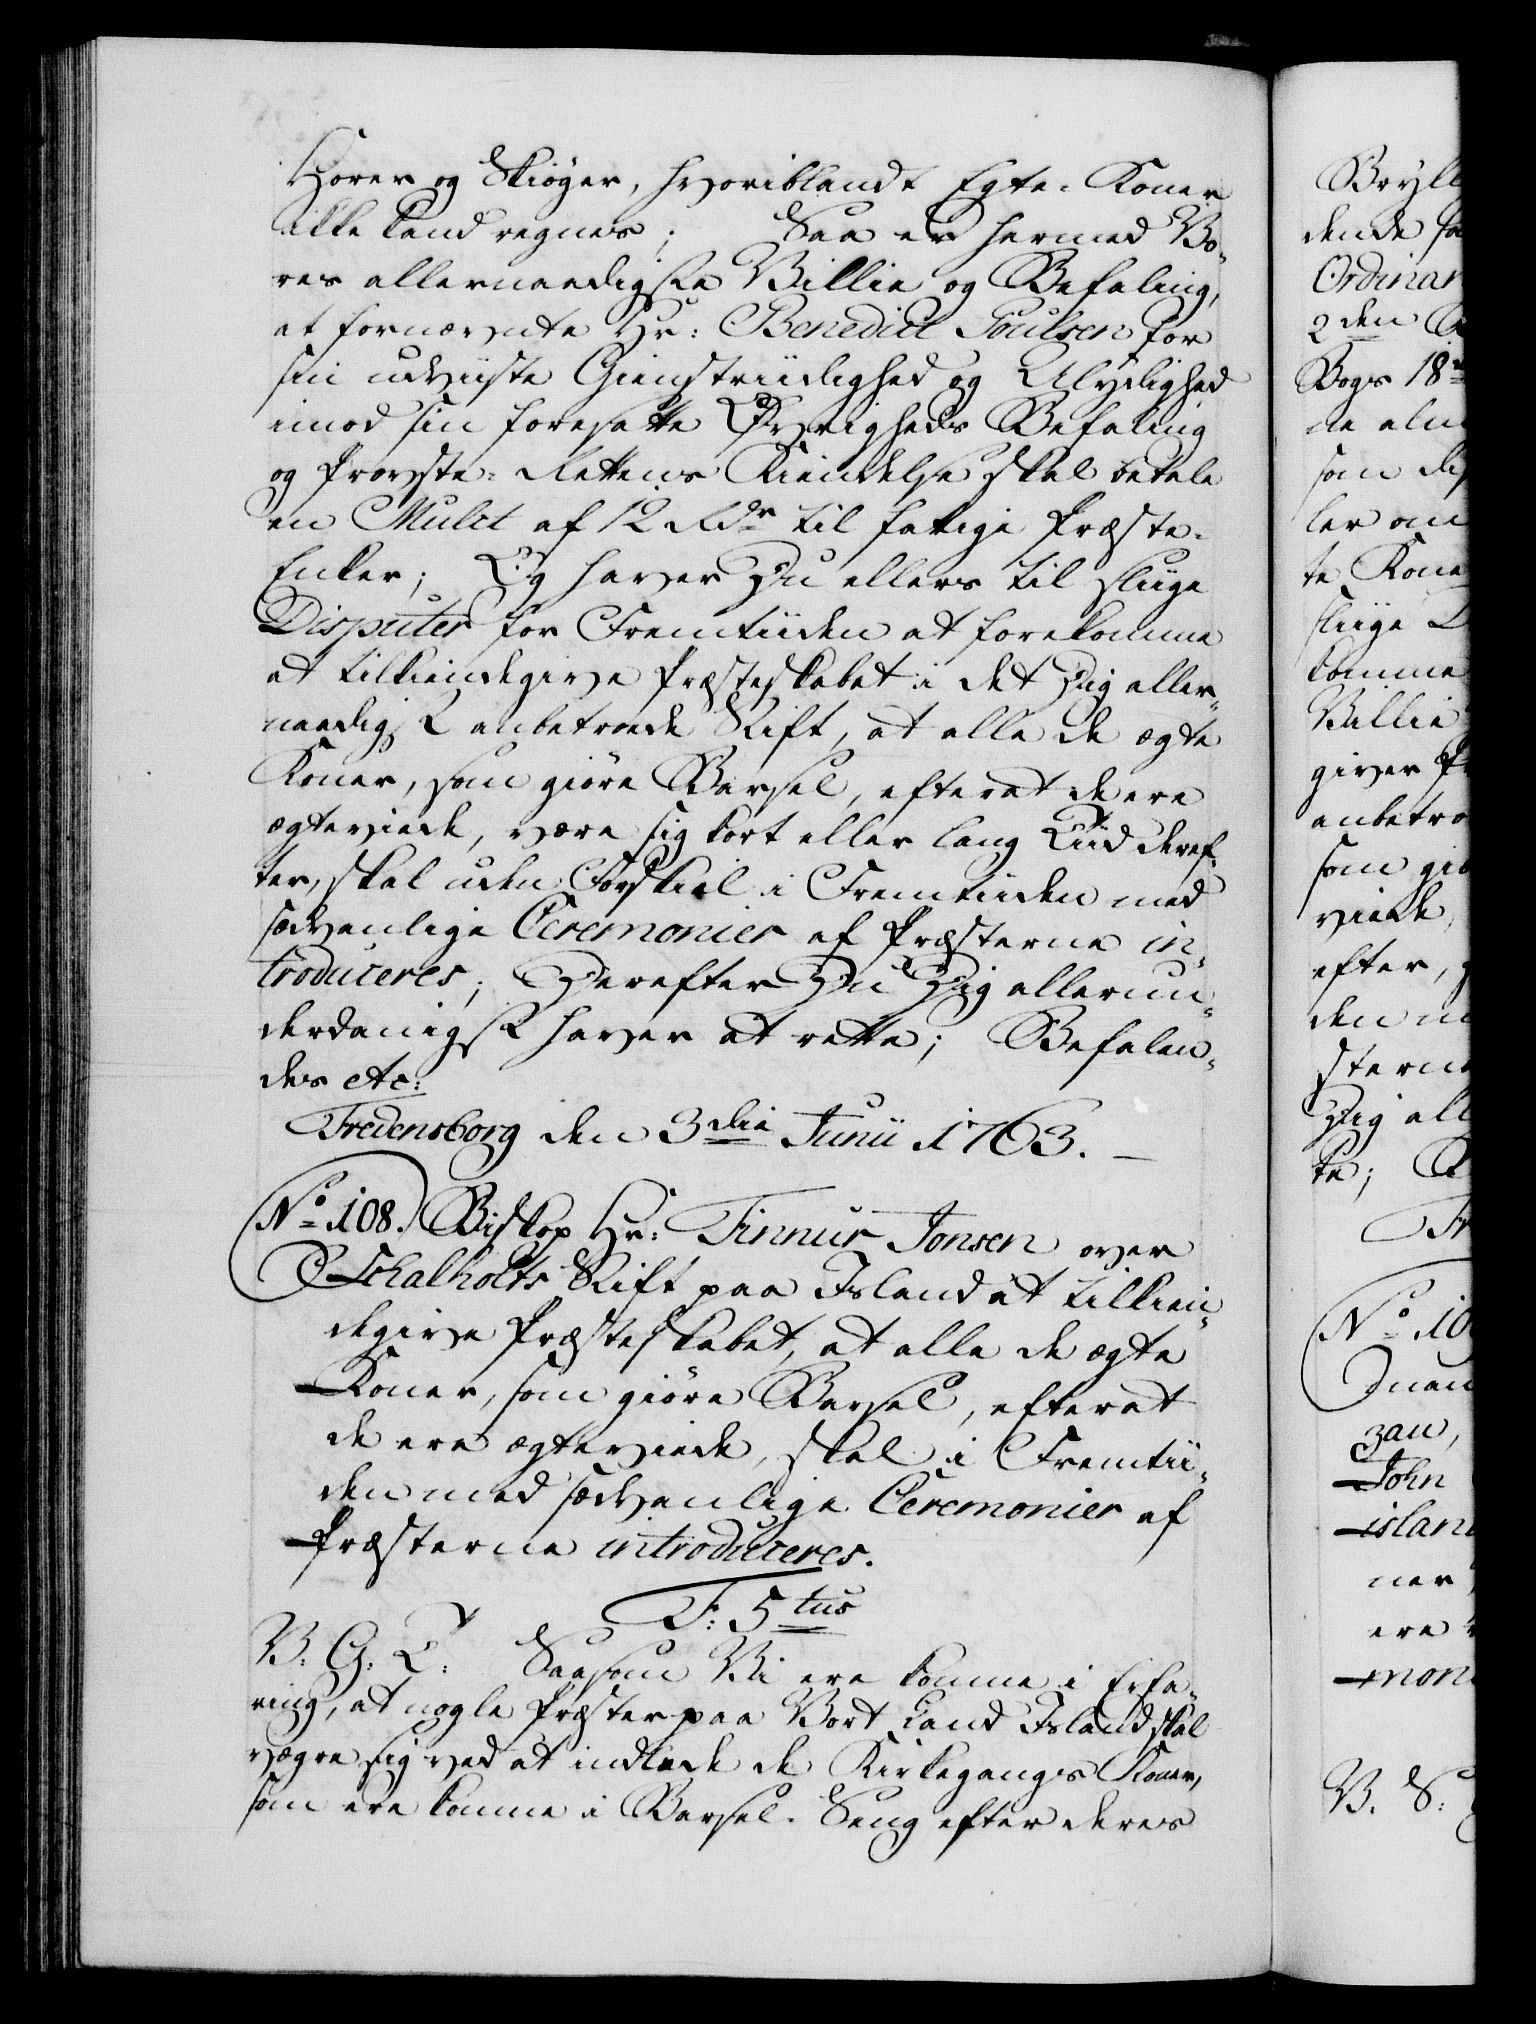 Horer og Skiøger, hvoriblandt Egte-Koner
ikke kand regnes; Saa er hermed Vo-
res allernaadigste Villie og Befaling,
at fornævnte Hr: Benedict Poulsen for
sin udviiste Gienstriidighed og Ulydighed
imod sin foresatte Øvrigheds Befaling
og Provste-Rettens Kiendelse skal betale
en Mulct af 12 Rdr til fattige Præste-
Enker; Og haver Du ellers til sliige
Disputer for Fremtiiden at forekomme
at tilkiendegive Præsteskabet i det Dig aller-
naadigst anbetroede Stift, at alle de ægte
Koner, som giøre Barsel, efterat de ere
ægteviede, være sig kort eller lang Tiid deref-
ter, skal uden Forskiel i Fremtiiden med
sædvanlige Ceremonier af Præsterne in-
troduceres; Derefter Du Dig allerun-
derdanigst haver at rette; Befalen-
des etc:
Fredensborg den 3die Junii 1763.
No 108. Biskop Hr: Finnur Jonsen over
Schalholts Stift paa Island at tilkien-
degive Præsteskabet, at alle de ægte
Koner, som giøre Barsel, efterat
de ere ægteviede, skal i Fremtii-
den med sædvanlige Ceremonier af
Præsterne introduceres.
F: 5tus
V. G. T: Saasom Vi ere komne i Erfa-
ring, at nogle Præster paa Vort Land Island skal
vægre sig ved at indlede de Kirkegangs Koner,
som ere komne i Barsel-Seng efter deres
Bryll
dende
Ordinan
2den
Bogs 18
de alm
som
ler om
te Kone
sliige D
komme
Villie
giver Pr
anbetro
som giø
viede,
efter,
den m
stern
Dig all
te;
Fr
No 10
zan,
John
island
ner
ere
moni
V. S: